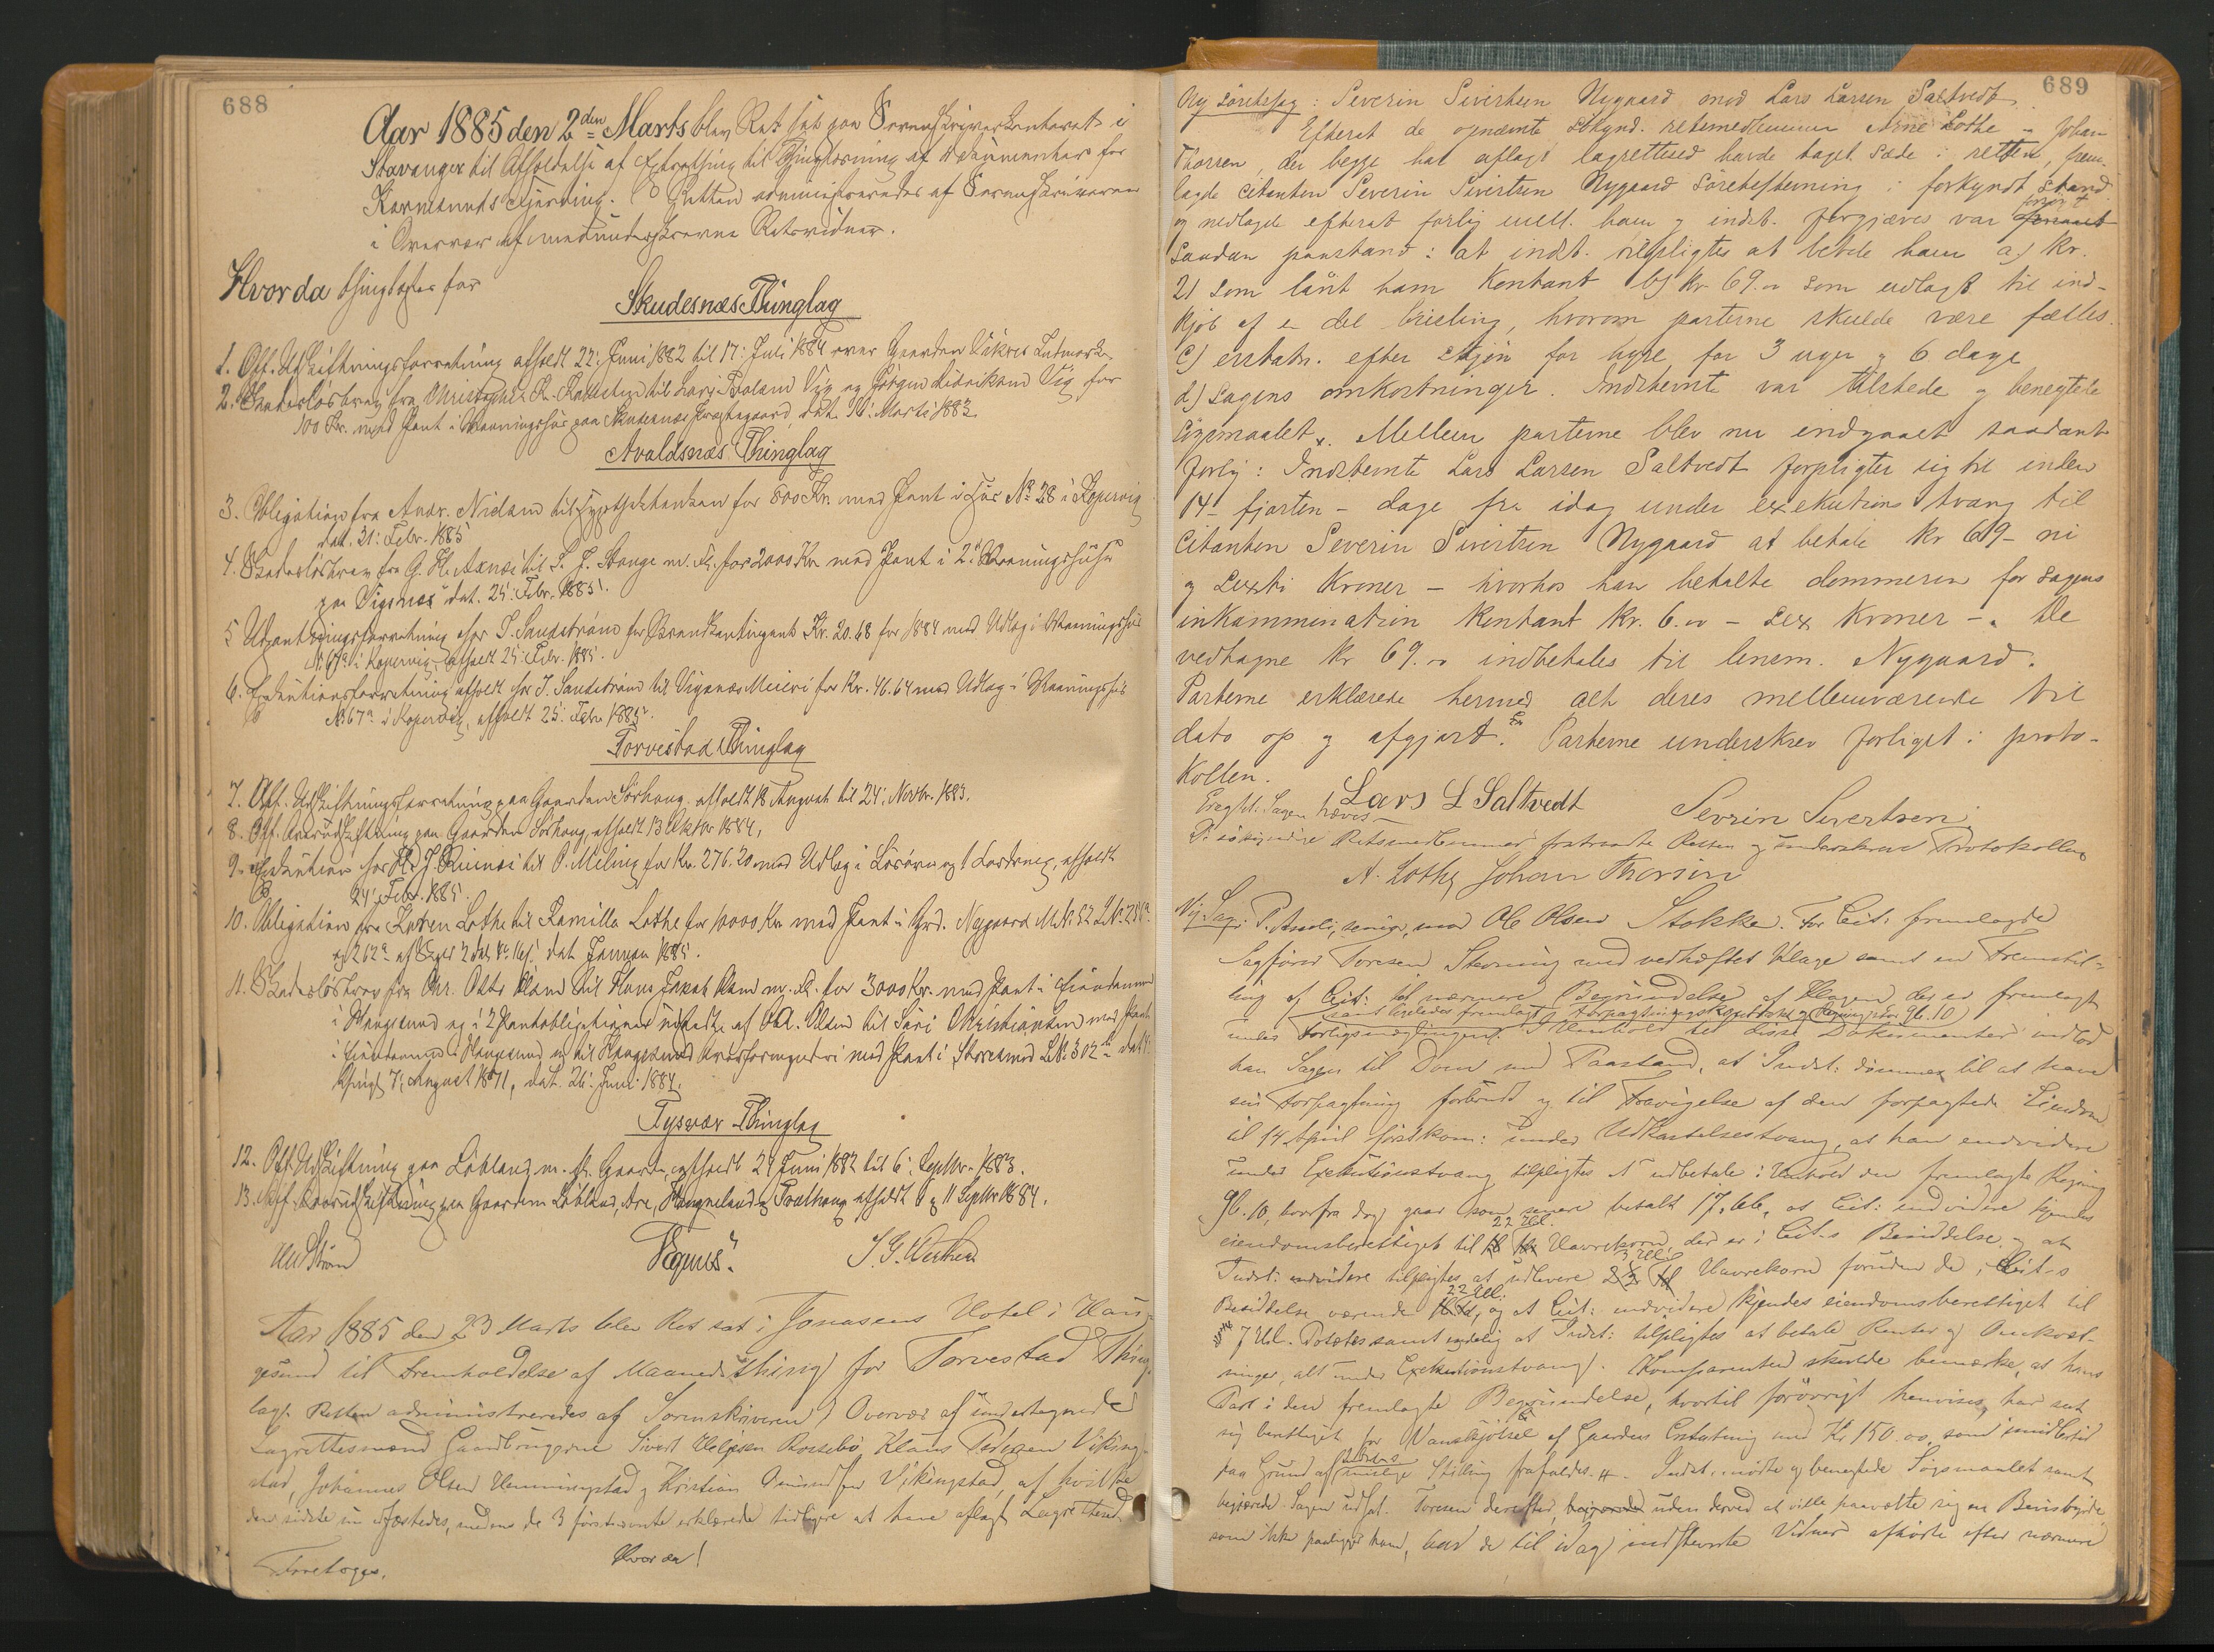 688
Aar 1885 den 2den Marts blev Ret sat paa Sorenskriverkontoret i
Stavanger til Afholdelse af Extrathing til Thinglæsning af Documenter for
Karmsunds Fjerding. Retten administreredes af Sorenskriveren
i Overvær af medunderskrevne Retsvidner.
Hvorda thinglæstes for
Skudesnæs Thinglag
1. Off. Udskiftningsforretning afholdt 22: Juni 1882 til 17: Juli 1884 over Gaarden Vikres Udmark.
2. Skadesløsbrev fra til Vig og Vig for
100 Kr. med Pant i Vaaningshus paa Skudesnæs Præstegaard, dat. Marts 1883.
Avaldsnæs Thinglag
3. Obligation fra Andr. Nielsen til Hypothekbanken for 800 Kr. med Pant i Hus No 28 i Kopervig
dat. 21: Febr. 1885
4. Skadesløsbrev fra G. H. til S. J. Stange m. fl. for 2000 Kr. med Pant i 2 Vaaningshuse
paa Vigsnæs dat. 25: Febr. 1885.
5 Udpantningsforretning hos J. Sandstrøm for Brandkontingent Kr. 20.68 for 1884 med Udlæg i Vaaningshus
No 67a i Kopervig, afholdt 25: Febr. 1885.
6. Executionsforretning afholdt hos J. Sandstrøm til Vigsnæs Meieri for Kr. 46.64 med Udlæg i Vaaningshus
No 67a i Kopervig, afholdt 25: Febr. 1885.
Torvestad Thinglag
7. Off. Udskiftningsforretning paa Gaarden Sørhaug afholdt 18 August til 24: Novbr. 1883.
8. Off. Overudskiftning paa Gaarden Sørhaug, afholdt 13 Oktbr 1884.
9. Execution hos H. J. til O. Meling for Kr. 276.20 med Udlæg i Løsøre og 1 afholdt
24: Febr. 1885.
10. Obligation fra Karen Lothe til Kamilla Lothe for 10000 Kr. med Pant i Grd. Nygaard M.No 52 L.No 250a
og 262a af Skyld 2 dat Januar 1885.
11. Skadesløsbrev fra Chr. til Hans Jakob m. fl. for 3000 Kr. med Pant i Eiendommen
i Haugesund og i 2 Pantobligationer udstedte af Olsen til Christiansen med Pant
i Eiendomme i Haugesund og til Haugesund med Pant i L.No 302
thingl. 7: August 1871, dat. 26: Juni 1884.
Tysvær Thinglag
12. Off. Udskiftning paa Løbland m. fl. Gaarde, afholdt 24 Juni 1882 til 6: Septbr. 1883.
13. Off. Overudskiftning paa Gaardene Løbland, Are, og afholdt og 11 Septbr 1884.
Aar 1885 den 23 Marts blev Ret sat i Jonasens Hotel i Hau-
gesund til Fremholdelse af Maanedsthing for Torvestad Thing-
lag. Retten administreredes af Sorenskriveren i Overvær af undertegnede
Lagrettesmænd Gaardbrugerne Sivert Helgesen Rossebø, Klaus Pedersen Viking-
stad, Johannes Olsen Hemmingstad og Kristian Vikingstad, af hvilke
den sidste nu edfæstedes, medens de 3 førstnævnte erklærede tidligere at have aflagt Lagrettesed.
Hvorda!
Foretoges.
689
Ny søretssag: Severin Sivertsen Nygaard mod Lars Larsen Saltvedt.
Efterat de opnævnte søkynd. retsmedlemmer Arne Lothe og Johan
Thorsen, der begge har aflagt lagrettesed havde taget sæde i retten, frem-
lagde citanten Severin Sivertsen Nygaard søretsstevning i forkyndt stand
og nedlagde efterat forlig mell. ham og indst. forgjæves var forsøgt
saadan paastand: at indst. tilpligtes at betale ham a) kr.
21 som lånt ham kontant b) kr 69.00 som udlagt til ind-
kjøb af en del brisling, hvorom parterne skulde være fælles.
c) erstatn. efter skjøn for hyre for 3 uger og 6 dage
d) sagens omkostninger. Indstevnte var tilstede og benegtede
søgsmaalet. Mellem parterne blev nu indgaaet saadant
forlig: Indstevnte Lars Larsen Saltvedt forpligter sig til inden
14 - fjorten - dage fra idag under exekutions tvang til
Citanten Severin Sivertsen Nygaard at betale kr 69 - ni
og sexti kroner - hvorhos han betalte dommeren for sagens
inkammination kontant kr. 6.00 - sex kroner -. De
vedtagne kr 69.00 indbetales til lensm. Nygaard.
Parterne erklærede hermed alt deres mellemværende til
dato op og afgjort. Parterne underskrev forliget i proto-
kollen.
Lars L Saltvedt
Sevrin Sivertsen
Eragtet: Sagen hæves
De søkyndige Retsmedlemmer fratraadte Retten og underskrev Protokollen
A. Lothe Johan Thorsen
Ny Sag: P. senior, mod Ole Olsen Stokke. For Cit: fremlagde
Sagfører Toresen Stævning med vedhæftet Klage samt en Fremstil-
ling af Cit: til nærmere Begrundelse af Klagen, der er fremlagt
samt ligeledes fremlagt Forpagtningskontrakt og Regning stor 96.10)
under Forligsmæglingen. I Henhold til disse Dokumenter indlod
han Sagen til Dom med Paastand, at Indst: dømmes til at have
sin Forpagtning forbrudt og til Fravigelse af den forpagtede Eiendom
til 14 April førstkom: under Udkastelsestvang, at han endvidere
under Exekutionstvang tilpligtes at udbetale i Henhold den fremlagte Regning
96.10, hvorfra dog gaar som senere betalt 17,66, at Cit: endvidere kjendes
22 Hl.
eiendomsberettiget til Havrekorn, der er i Cit-s Besiddelse og at
3 Hl
Indst: endvidere tilpligtes at udlevere Havrekorn foruden de i Cit-s
22 Hl.
Besiddelse værende, og at Cit: endvidere kjendes eiendomsberettiget til
7 Hl. Potetes samt endelig at Indst: tilpligtes at betale Renter og Omkost-
ninger, alt under Exekutionstvang. Komparenten skulde bemærke, at hans
Part i den fremlagte Begrundelse, hvortil forøvrigt henvises, har sat
sig berettiget for Vanskjøtsel af Gaarden Erstatning med Kr 150.00, som imidlertid
paa Grund af Indst-s Stilling frafaldes. Indst. mødte og benegtede Søgsmaalet samt
begjærede Sagen udsat. Toresen derefter, uden derved at ville paavælte sig en Bevisbyrde,
som ikke paaligger ham, bad de til idag indstevnte Vidner afhørte efter nærmere